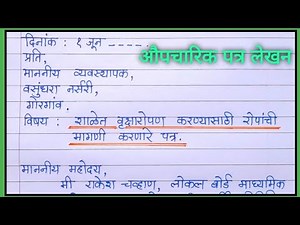 औपचारिक पत्र लेखन
दिनांक : १ जून _ _ _ _ .
प्रति,
माननीय व्यवस्थापक,
वसुंधरा नर्सरी,
गोरेगांव.
विषय : शाळेत वृक्षारोपण करण्यासाठी रोपांची
मागणी करणारे पत्र.
माननीय महोदय,
मी राकेश चव्हाण, लोकल बोर्ड माध्यमिक